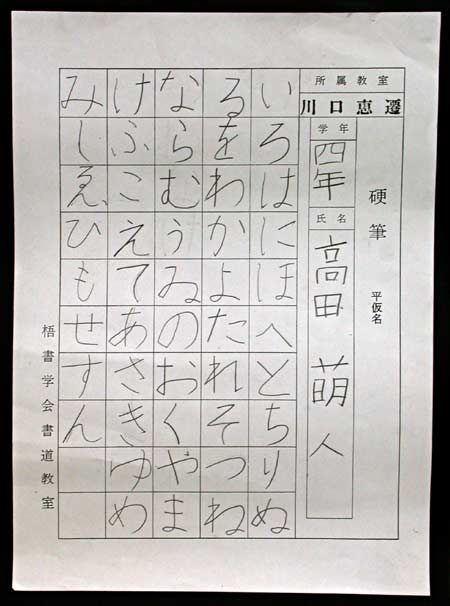 硬筆 平仮名
所属教室
川口恵遷
学年
四年
氏名
高田 萌人
いろはにほへとちりぬ
るをわかよたれそつね
ならむうゐのおくやま
けふこえてあさきゆめ
みしゑひもせすん
梧書学会書道教室